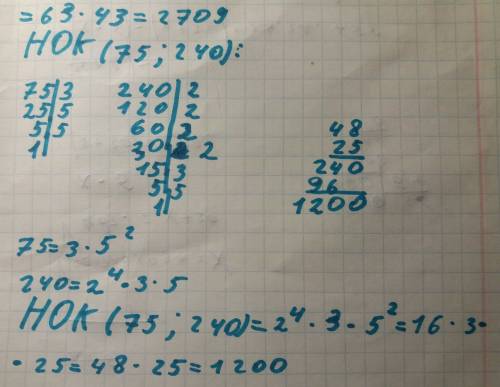 = 63 · 43 = 2709
НОК (75 ; 240):
75 | 3
25 | 5
5 | 5
1 |
240 | 2
120 | 2
60 | 2
30 | 2
15 | 3
5 | 5
1 |
48
25
240
96
1200
75 = 3 · 5²
240 = 2⁴ · 3 · 5
НОК (75 ; 240) = 2⁴ · 3 · 5² = 16 · 3 ·
· 25 = 48 · 25 = 1200